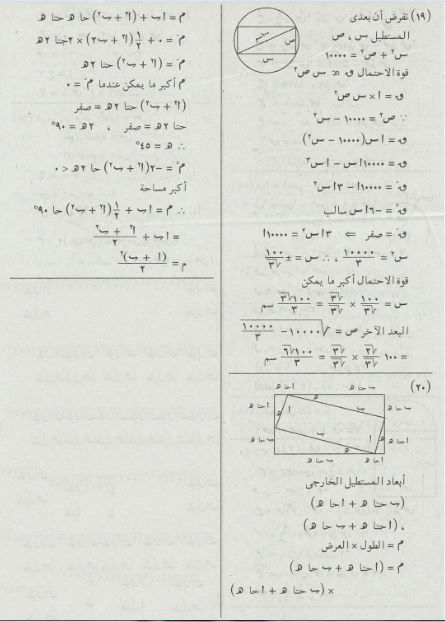 (١٩) نفرض أن بعدى
المستطيل س ، ص
س٢ + ص٢ = ١٠٠٠٠
قوة الاحتمال ق ∝ س ص٢
ق = ا × س ص٢
∵ ص٢ = ١٠٠٠٠ − س٢
ق = ا س (١٠٠٠٠ − س٢)
ق = ١٠٠٠٠ ا س − ا س٣
قَ = ١٠٠٠٠ ا − ٣ ا س٢
قً = −٦ ا س سالب
قَ = صفر ⇐ ٣ ا س٢ = ١٠٠٠٠ ا
س٢ = ١٠٠٠٠/٣ ، ∴ س = ± ١٠٠/√٣
قوة الاحتمال أكبر ما يمكن
س = ١٠٠/√٣ × √٣/√٣ = ١٠٠√٣/٣ سم
البعد الآخر ص = √(١٠٠٠٠ − ١٠٠٠٠/٣)
= ١٠٠ √٢/√٣ × √٣/√٣ = ١٠٠√٦/٣ سم
(٢٠)
ا حا هـ ب حتا هـ
ا حتا هـ ب حا هـ
ب حا هـ ا حتا هـ
ب حتا هـ ا حا هـ
أبعاد المستطيل الخارجى
(ب حتا هـ + ا حا هـ)
، (ا حتا هـ + ب حا هـ)
م = الطول × العرض
م = (ا حتا هـ + ب حا هـ)
× (ب حتا هـ + ا حا هـ)
م = ا ب + (ا٢ + ب٢) حا هـ حتا هـ
مَ = ٠ + ١/٢ (ا٢ + ب٢) × ٢ حتا ٢هـ
مَ = (ا٢ + ب٢) حتا ٢هـ
م أكبر ما يمكن عندما مَ = ٠
(ا٢ + ب٢) حتا ٢هـ = صفر
حتا ٢هـ = صفر ، ٢هـ = ٩٠°
∴ هـ = ٤٥°
مً = −٢(ا٢ + ب٢) حا ٢هـ < ٠
أكبر مساحة
∴ م = ا ب + ١/٢ (ا٢ + ب٢) حا ٩٠°
= ا ب + (ا٢ + ب٢)/٢
م = (ا + ب)٢/٢